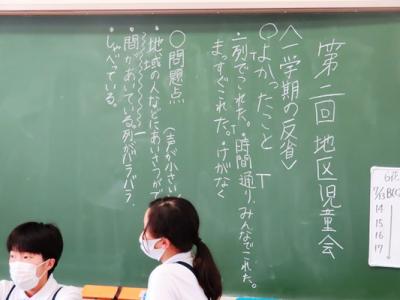 第二回 地区児童会
〈一学期の反省〉
○よかったこと
・一列でこれた。・時間通り、みんなでこれた。
まっすぐこれた。・けがなく
○問題点 (声が小さい
・地域の人などにあいさつがで
・間があいている。列がバラバラ。
・しゃべっている。
14
15
16
17